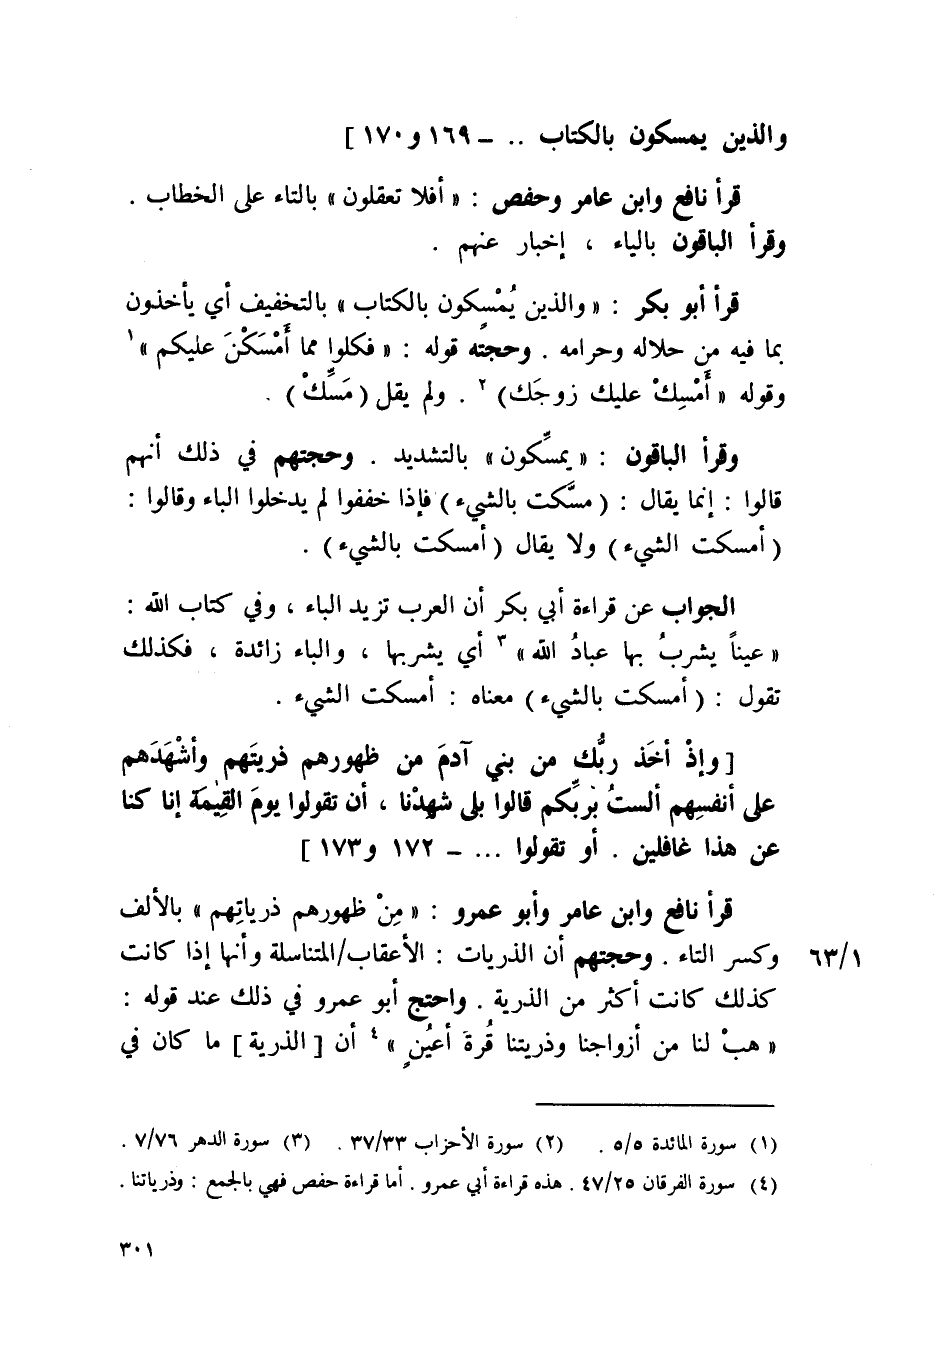 والذين يمسكون بالكتاب .. ــ ١٦٩ و١٧٠ ]
قرأ نافع وابن عامر وحفص : « أفلا تعقلون » بالتاء على الخطاب .
وقرأ الباقون بالياء ، إخبار عنهم .
قرأ أبو بكر : « والذين يُمْسِكون بالكتاب » بالتخفيف أي يأخذون
بما فيه من حلاله وحرامه . وحجته قوله : « فكلوا مما أَمْسَكْنَ عليكم »١
وقوله « أَمْسِكْ عليك زوجَك) ٢ . ولم يقل ( مَسِّكْ ) .
وقرأ الباقون : « يمسِّكون » بالتشديد . وحجتهم في ذلك أنهم
قالوا : إنما يقال : ( مسَّكت بالشيء ) فإذا خففوا لم يدخلوا الباء وقالوا :
( أمسكت الشيء ) ولا يقال ( أمسكت بالشيء ) .
الجواب عن قراءة أبي بكر أن العرب تزيد الباء ، وفي كتاب الله :
« عيناً يشربُ بها عبادُ الله » ٣ أي يشربها ، والباء زائدة ، فكذلك
تقول : ( أمسكت بالشيء ) معناه : أمسكت الشيء .
[ وإذْ أخَذ ربُّك من بني آدمَ من ظهورهم ذريتَهم وأشْهَدَهم
على أنفسِهم ألستُ بربِّكم قالوا بلى شهِدْنا ، أن تقولوا يومَ القِيٰمَة إنا كنا
عن هذا غافلين . أو تقولوا ... ــ ١٧٢ و١٧٣ ]
قرأ نافع وابن عامر وأبو عمرو : « مِنْ ظهورهم ذرياتِهم » بالألف
وكسر التاء . وحجتهم أن الذريات : الأعقاب/المتناسلة وأنها إذا كانت
٦٣/١
كذلك كانت أكثر من الذرية . واحتج أبو عمرو في ذلك عند قوله :
« هبْ لنا من أزواجنا وذريتنا قُرةَ أعيُنٍ » ٤ أن [ الذرية ] ما كان في
(١) سورة المائدة ٥/٥ . (٢) سورة الأحزاب ٣٧/٣٣ . (٣) سورة الدهر ٧/٧٦ .
(٤) سورة الفرقان ٤٧/٢٥ . هذه قراءة أبي عمرو . أما قراءة حفص فهي بالجمع : وذرياتنا .
٣٠١